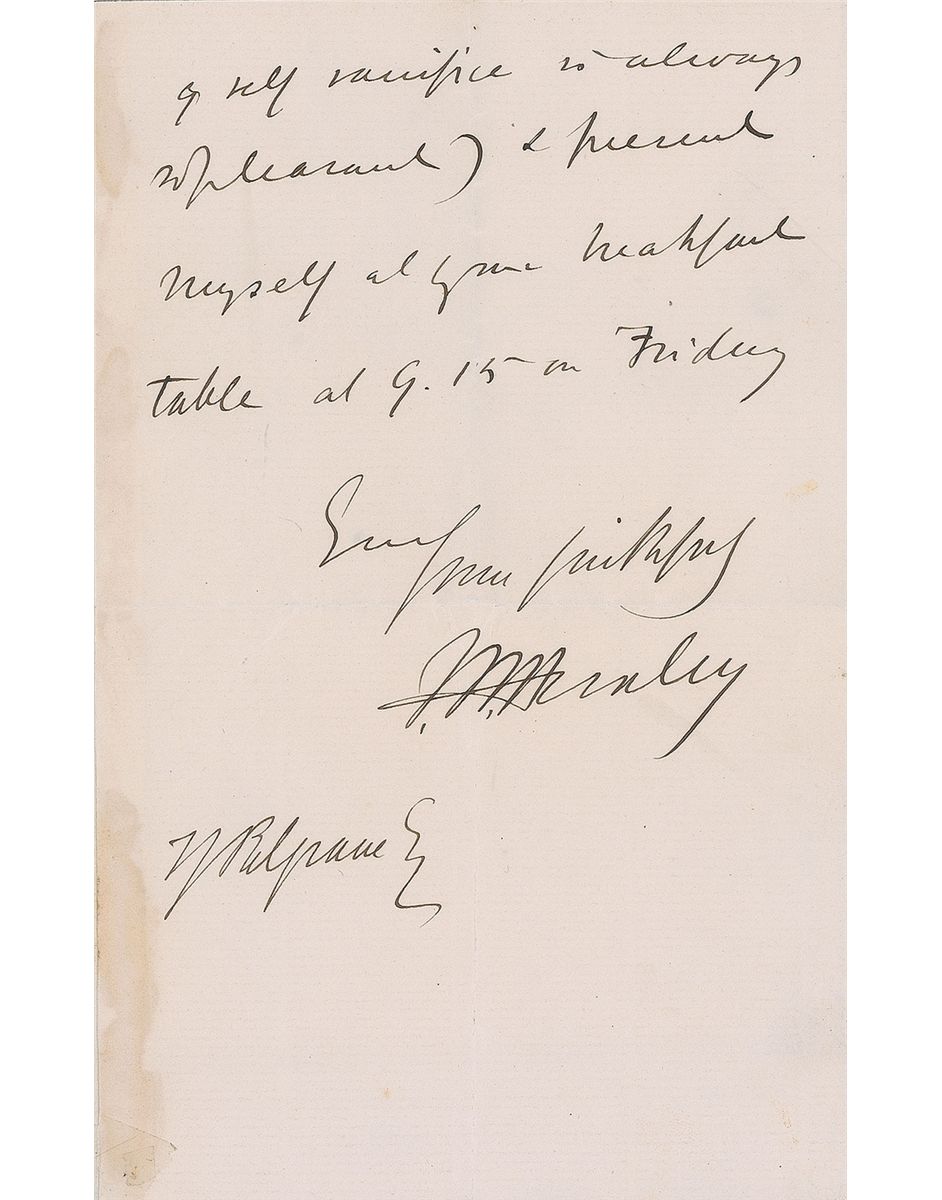 of self sacrifice is always
so pleasant) & present
myself at your breakfast
table at 9.15 on Friday
Ever
yours faithfully
T. H. Huxley
Palgrave Esq